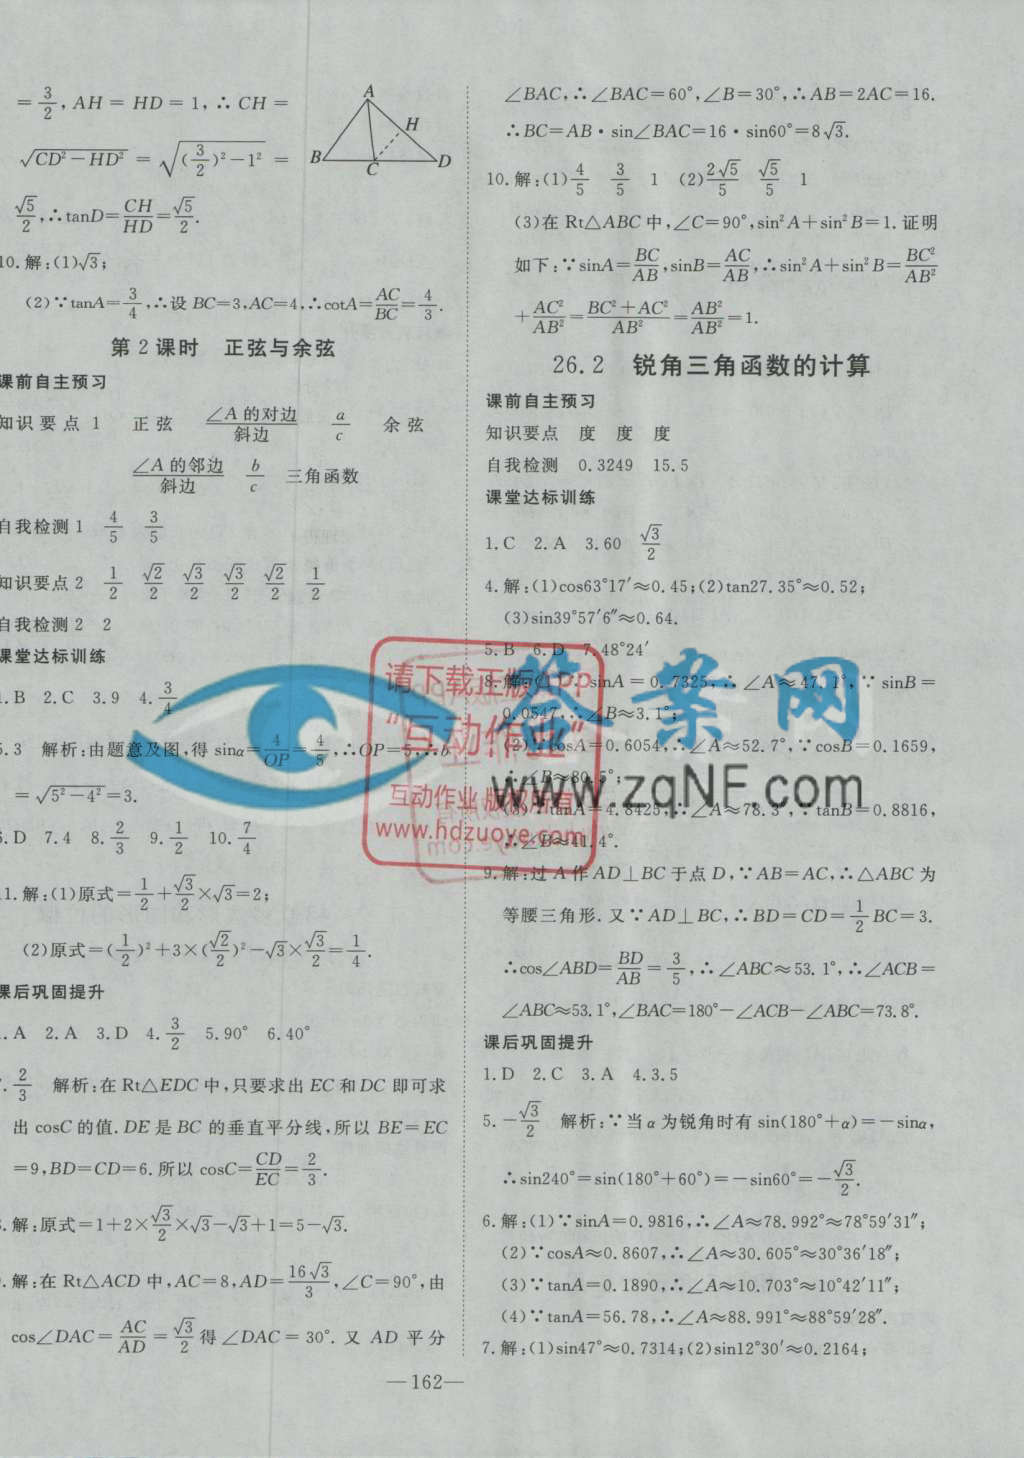 =3/2, AH = HD = 1, ∴ CH =
√(CD²-HD²) = √((3/2)²-1²) =
√5/2, ∴tanD=CH/HD=√5/2.
A
H
B
C
D
10.解:(1)√3;
(2)∵tanA=3/4, ∴设BC=3, AC=4, ∴cotA=AC/BC=4/3.
第2课时 正弦与余弦
课前自主预习
知识要点 1 正弦 ∠A的对边/斜边 a/c 余弦
∠A的邻边/斜边 b/c 三角函数
自我检测1 4/5 3/5
知识要点2 1/2 √2/2 √3/2 √3/2 √2/2 1/2
自我检测2 2
课堂达标训练
1.B 2.C 3.9 4.3/4
5.3 解析:由题意及图,得 sinα=4/OP=4/5, ∴OP=5, ∴b
=√(5²-4²)=3.
6.D 7.4 8.2/3 9.1/2 10.7/4
11.解:(1)原式=1/2+√3/2×√3=2;
(2)原式=(1/2)²+3×(√2/2)²-√3×√3/2=1/4.
课后巩固提升
1.A 2.A 3.D 4.3/2 5.90° 6.40°
7.2/3 解析:在Rt△EDC中,只要求出EC和DC即可求
出cosC的值.DE是BC的垂直平分线,所以BE=EC
=9,BD=CD=6.所以cosC=CD/EC=2/3.
8.解:原式=1+2×√3/2×√3-√3+1=5-√3.
9.解:在Rt△ACD中,AC=8,AD=16√3/3,∠C=90°,由
cos∠DAC=AC/AD=√3/2得∠DAC=30°.又AD平分
∠BAC,∴∠BAC=60°,∠B=30°,∴AB=2AC=16.
∴BC=AB·sin∠BAC=16·sin60°=8√3.
10.解:(1)4/5 3/5 1 (2)2√5/5 √5/5 1
(3)在Rt△ABC中,∠C=90°,sin²A+sin²B=1.证明
如下:∵sinA=BC/AB,sinB=AC/AB,∴sin²A+sin²B=BC²/AB²
+AC²/AB²=(BC²+AC²)/AB²=AB²/AB²=1.
26.2 锐角三角函数的计算
课前自主预习
知识要点 度 度 度
自我检测 0.3249 15.5
课堂达标训练
1.C 2.A 3.60 √3/2
4.解:(1)cos63°17′≈0.45;(2)tan27.35°≈0.52;
(3)sin39°57′6″≈0.64.
5.B 6.D 7.48°24′
8.解:(1)∵sinA=0.7325,∴∠A≈47.1°,∵sinB=
0.0547,∴∠B≈3.1°;
(2)∵cosA=0.6054,∴∠A≈52.7°,∵cosB=0.1659,
∴∠B≈80.5°;
(3)∵tanA=4.8425,∴∠A≈78.3°,∵tanB=0.8816,
∴∠B≈41.4°.
9.解:过A作AD⊥BC于点D,∵AB=AC,∴△ABC为
等腰三角形.又∵AD⊥BC,∴BD=CD=1/2BC=3.
∴cos∠ABD=BD/AB=3/5,∴∠ABC≈53.1°,∴∠ACB=
∠ABC≈53.1°,∠BAC=180°-∠ACB-∠ABC=73.8°.
课后巩固提升
1.D 2.C 3.A 4.3.5
5.-√3/2 解析:∵当α为锐角时有sin(180°+α)=-sinα,
∴sin240°=sin(180°+60°)=-sin60°=-√3/2.
6.解:(1)∵sinA=0.9816,∴∠A≈78.992°≈78°59′31″;
(2)∵cosA≈0.8607,∴∠A≈30.605°≈30°36′18″;
(3)∵tanA=0.1890,∴∠A≈10.703°≈10°42′11″;
(4)∵tanA=56.78,∴∠A≈88.991°≈88°59′28″.
7.解:(1)sin47°≈0.7314;(2)sin12°30′≈0.2164;
—162—
请下载正版App
“互动作业”
互动作业 版权所有
www.hdzuoye.com
答案网
www.zqNF.com